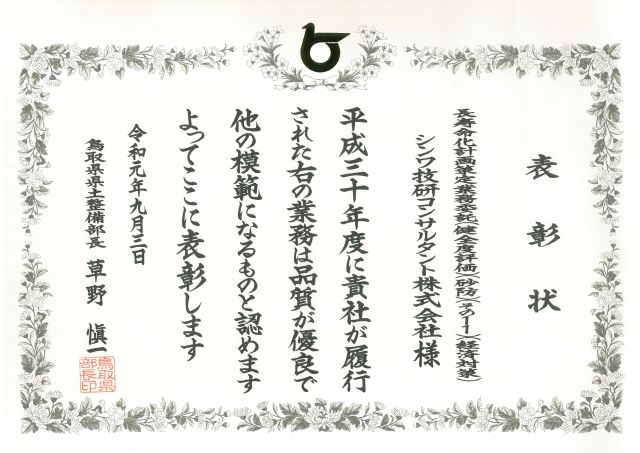 表彰状
長寿命化計画策定業務委託(健全度評価)(砂防)(その1-1)(経済対策)
シンワ技研コンサルタント株式会社様
平成三十年度に貴社が履行
された右の業務は品質が優良で
他の模範になるものと認めます
よってここに表彰します
令和元年九月三日
鳥取県県土整備部長 草野 愼一
鳥取県
部長印